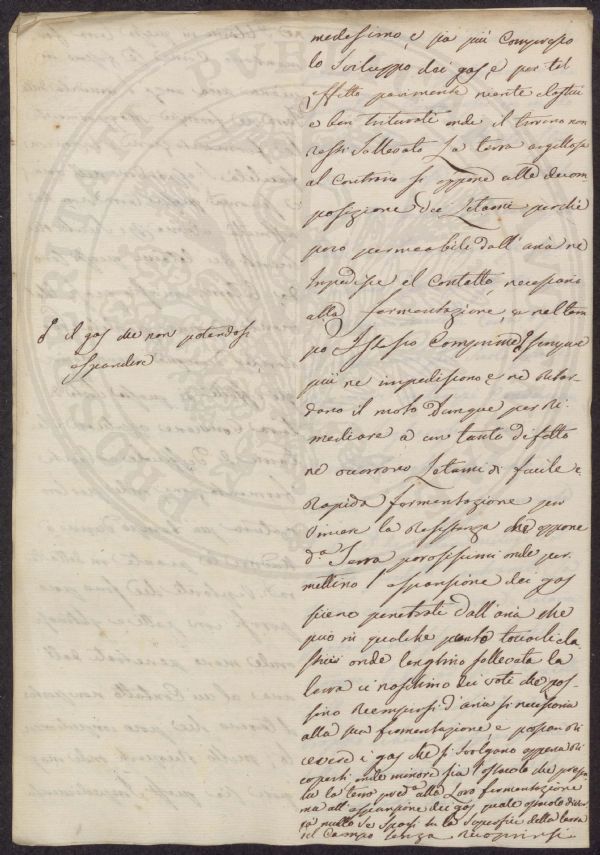 medesimo, e sia più compresso
lo Sviluppo dei gas, e per tal
effetto parimente niente elastici
e ben triturati onde il terreno non
resti Sollevato La terra argillosa
al Contrario si oppone alla decom-
posizione dei Letami perchè
poco permeabile dall'aria ne
Impedisce el Contatto, necessario
alla fermentazione, e nel tem-
po Istesso Comprime
più ne impediscono e ne Ritar-
dano il moto Dunque per Ri-
mediare a un tanto difetto
ne ocorrono Letami di facile e
Rapida fermentazione per
Vincere la Resistenza che oppone
da Terra porosissimi onde per-
mettino l'espansione dei gas
sieno penetrati dall'aria che
può in qualche punto ela-
stici onde tenghino sollevata la
terra ci naschino dei voti che pos-
sino Riempirsi d'aria si necessaria
alla sua fermentazione e possan Ri-
cevere i gas che si svolgano appena Ri-
coperti onde minore sia l'ostacolo che
la terra alla Loro fermentazione
ma all'espansione dei gas quale ostacolo
nullo se Sparsi su la Superfice della terra
nel Campo senza Ricoprirsi
il gas che non potendosi
espandere